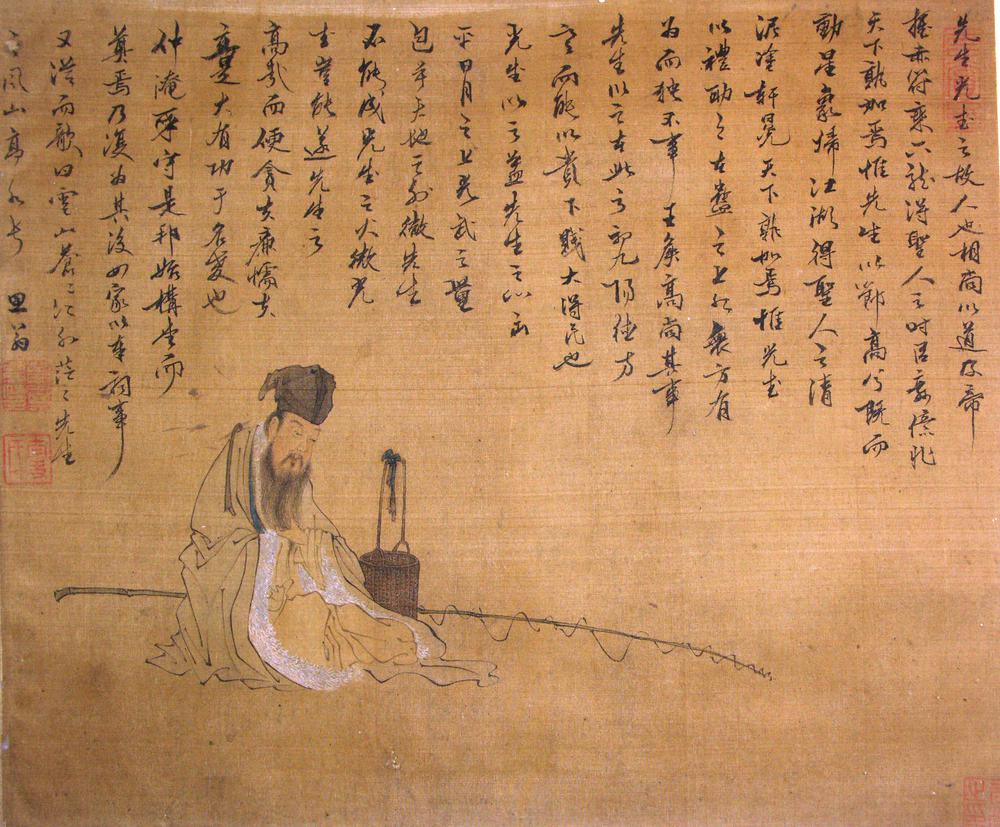 先生光武之故人也相尚以道及帝
握赤符乘六龍得聖人之时臣妾億兆
天下孰加焉惟先生以節高之既而
動星象歸江湖得聖人之清
泥塗軒冕天下孰加焉惟光武
以禮下之在蠱之上九衆方有
為而独不事王侯高尚其事
先生以之在此之初九陽德方
亨而能以貴下賤大得民也
光武以之盖先生之心出
乎日月之上光武之量
包乎天地之外微先生
不能成光武之大微光
武豈能遂先生之
高哉而使貪夫廉懦夫
立是大有功于名教也
仲淹来守是邦始構堂而
奠焉乃復為其後四家以奉祠事
又從而歌曰雲山蒼〻江水茫〻先生
之風山高水长 思翁